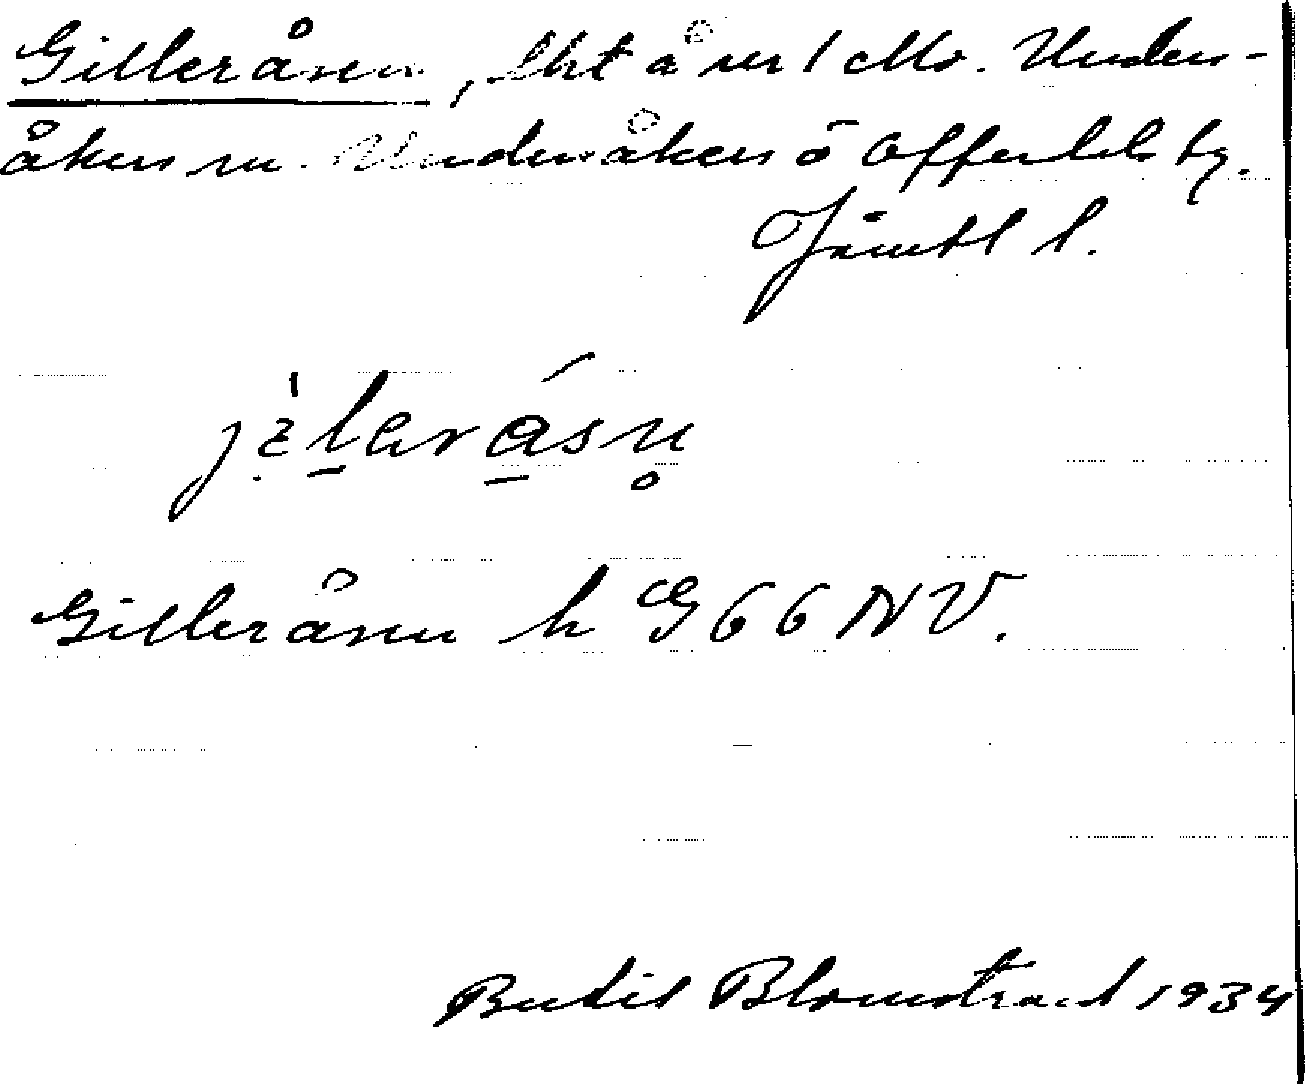 Gilleråsen, Skt å nr 1 Mo. Unders-
åkers sn. Undersåkers o Offerdals tg.
Jämtl l.
Gilleråsen h G66 NV.
Bertil Blomstrand 1934